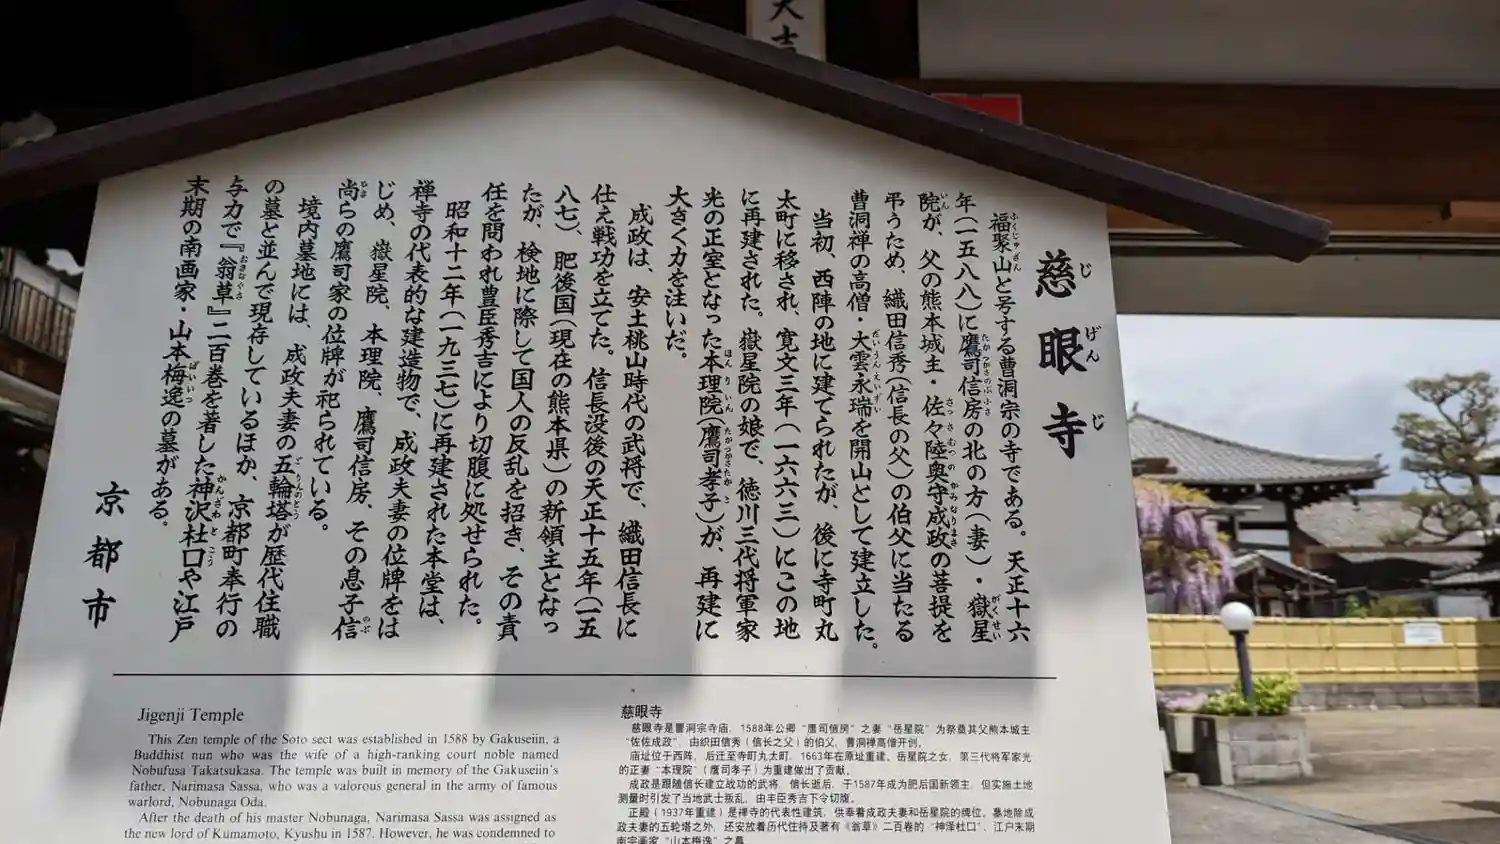 大吉
慈眼寺
じげんじ
福聚山と号する曹洞宗の寺である。天正十六
年(一五八八)に鷹司信房の北の方(妻)・嶽星
院が、父の熊本城主・佐々陸奥守成政の菩提を
弔うため、織田信秀(信長の父)の伯父に当たる
曹洞禅の高僧・大雲永瑞を開山として建立した。
当初、西陣の地に建てられたが、後に寺町丸
太町に移され、寛文三年(一六六三)にこの地
に再建された。嶽星院の娘で、徳川三代将軍家
光の正室となった本理院(鷹司孝子)が、再建に
大きく力を注いだ。
成政は、安土桃山時代の武将で、織田信長に
仕え戦功を立てた。信長没後の天正十五年(一五
八七)、肥後国(現在の熊本県)の新領主となっ
たが、検地に際して国人の反乱を招き、その責
任を問われ豊臣秀吉により切腹に処せられた。
昭和十二年(一九三七)に再建された本堂は、
禅寺の代表的な建造物で、成政夫妻の位牌をは
じめ、嶽星院、本理院、鷹司信房、その息子信
尚らの鷹司家の位牌が祀られている。
境内墓地には、成政夫妻の五輪塔が歴代住職
の墓と並んで現存しているほか、京都町奉行の
与力で『翁草』二百巻を著した神沢杜口や江戸
末期の南画家・山本梅逸の墓がある。
京都市
Jigenji Temple
This Zen temple of the Soto sect was established in 1588 by Gakuseiin, a
Buddhist nun who was the wife of a high-ranking court noble named
Nobufusa Takatsukasa. The temple was built in memory of the Gakuseiin's
father, Narimasa Sassa, who was a valorous general in the army of famous
warlord, Nobunaga Oda.
After the death of his master Nobunaga, Narimasa Sassa was assigned as
the new lord of Kumamoto, Kyushu in 1587. However, he was condemned to
慈眼寺
慈眼寺是曹洞宗寺庙，1588年公卿“鹰司信房”之妻“岳星院”为祭奠其父熊本城主
“佐佐成政”，由织田信秀（信长之父）的伯父，曹洞禅高僧开创。
庙址位于西阵，后迁至寺町丸太町，1663年在原址重建。岳星院之女，第三代将军家光
的正妻“本理院”（鹰司孝子）为重建做出了贡献。
成政是跟随信长建立战功的武将，信长逝后，于1587年成为肥后国新领主，但实施土地
测量时引发了当地武士叛乱，由丰臣秀吉下令切腹。
正殿（1937年重建）是禅寺的代表性建筑，供奉着成政夫妻和岳星院的牌位。墓地除成
政夫妻的五轮塔之外，还安放着历代住持及著有《翁草》二百卷的“神泽杜口”、江户末期
南宗画家“山本梅逸”之墓。